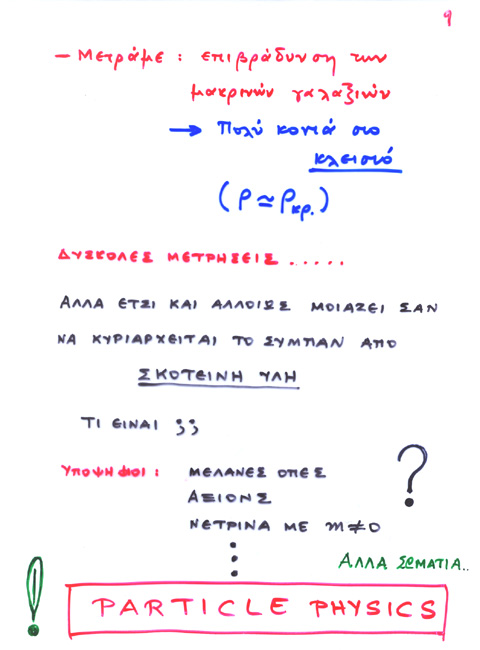 9
- Μετράμε : επιβράδυνση των
μακρινών γαλαξιών
→ Πολύ κοντά στο
κλειστό
(ρ ≃ ρκρ.)
ΔΥΣΚΟΛΕΣ ΜΕΤΡΗΣΕΙΣ .....
ΑΛΛΑ ΕΤΣΙ ΚΑΙ ΑΛΛΟΙΩΣ ΜΟΙΑΖΕΙ ΣΑΝ
ΝΑ ΚΥΡΙΑΡΧΕΙΤΑΙ ΤΟ ΣΥΜΠΑΝ ΑΠΟ
ΣΚΟΤΕΙΝΗ ΥΛΗ
ΤΙ ΕΙΝΑΙ ;;
ΥΠΟΨΗΦΙΟΙ : ΜΕΛΑΝΕΣ ΟΠΕΣ
ΑΞΙΟΝΣ
ΝΕΤΡΙΝΑ ΜΕ m≠0
?
⋮
ΑΛΛΑ ΣΩΜΑΤΙΑ..
! PARTICLE PHYSICS